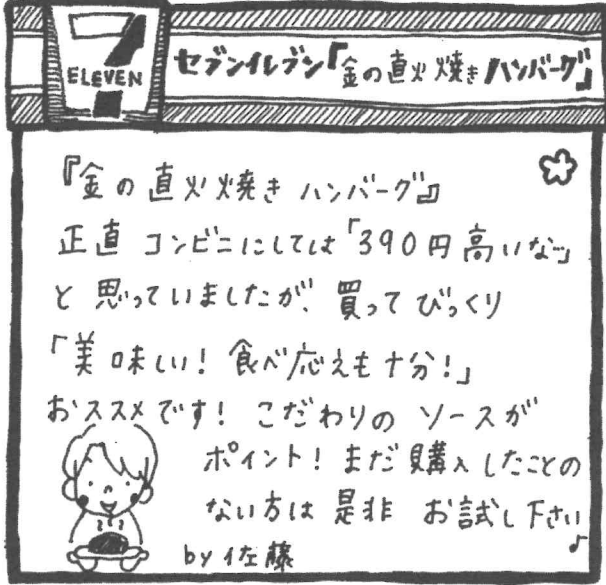 7
ELEVEN
セブンイレブン「金の直火焼きハンバーグ」
『金の直火焼き ハンバーグ』
正直 コンビニにしては「390円高いな…」
と思っていましたが、買ってびっくり
「美味しい！食べ応えも十分！」
おススメです！こだわりの ソースが
ポイント！まだ購入したことの
ない方は是非 お試し下さい♪
by 佐藤